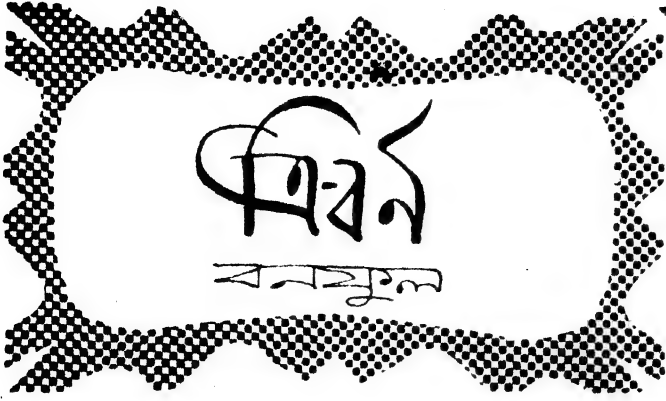 ত্রি-বর্ন
বনফুল